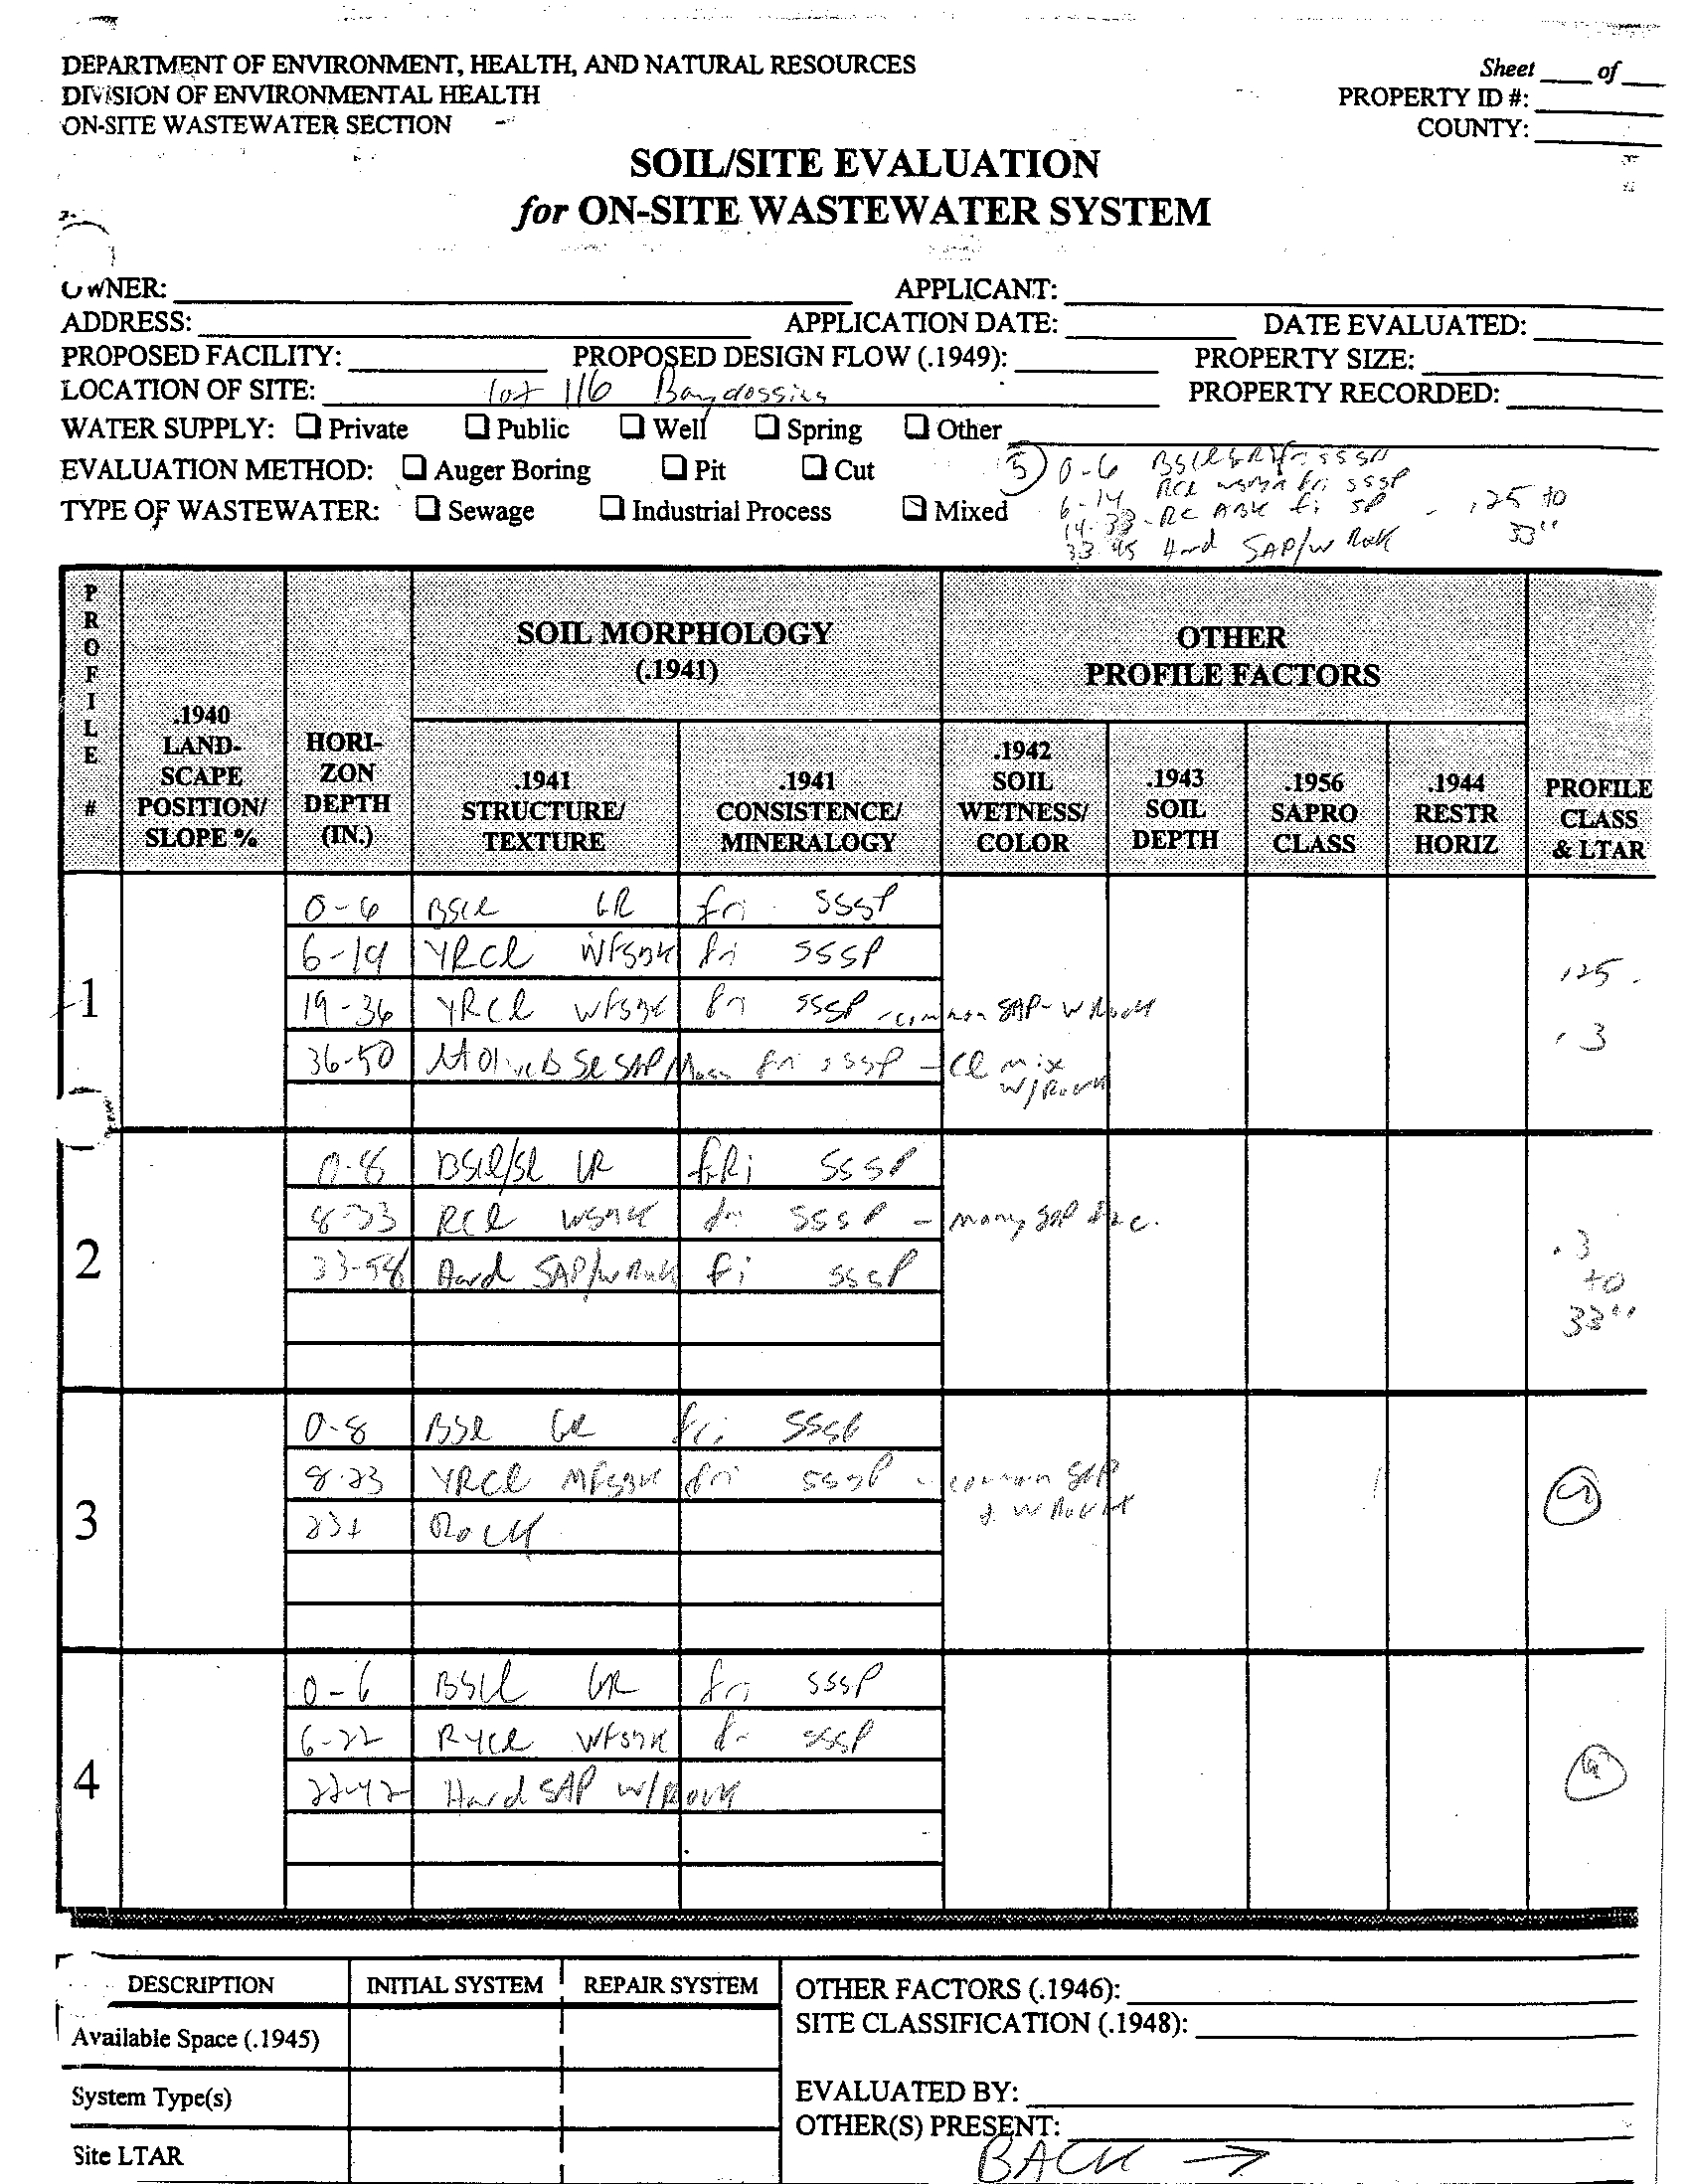 DEPARTMENT OF ENVIRONMENT, HEALTH, AND NATURAL RESOURCES
DIVISION OF ENVIRONMENTAL HEALTH
ON-SITE WASTEWATER SECTION
Sheet ____ of ____
PROPERTY ID #:
COUNTY:
SOIL/SITE EVALUATION
for ON-SITE WASTEWATER SYSTEM
OWNER: APPLICANT:
ADDRESS: APPLICATION DATE: DATE EVALUATED:
PROPOSED FACILITY: PROPOSED DESIGN FLOW (.1949): PROPERTY SIZE:
LOCATION OF SITE: lot 116 PROPERTY RECORDED:
WATER SUPPLY: ❑ Private ❑ Public ❑ Well ❑ Spring ❑ Other
EVALUATION METHOD: ❑ Auger Boring ❑ Pit ❑ Cut
TYPE OF WASTEWATER: ❑ Sewage ❑ Industrial Process ❑ Mixed
5 0-6
6-14 RCl fri SSSP
14-33 - RC ABK fi SP - .25 to 33"
33-45 Hard SAP/w Rock
PROFILE #
.1940 LAND-SCAPE POSITION/ SLOPE %
HORI-ZON DEPTH (IN.)
SOIL MORPHOLOGY (.1941)
.1941 STRUCTURE/ TEXTURE
.1941 CONSISTENCE/ MINERALOGY
OTHER PROFILE FACTORS
.1942 SOIL WETNESS/ COLOR
.1943 SOIL DEPTH
.1956 SAPRO CLASS
.1944 RESTR HORIZ
PROFILE CLASS & LTAR
1
0-6 BSCl GR fri SSSP
6-19 YRCl WFSBK fri SSSP
19-36 YRCl WFSBK fri SSSP - common SAP - W Rock
36-50 SAP fri SSSP - Cl mix w/Rock
.125
.3
2
0-8 BSCl/Sl GR fRi SSSP
8-33 RCl WSBK fri SSSP - many SAP
33-58 Hard SAP/w Rock fi SSSP
.3 to 33"
3
0-8 BSl GR fri SSSP
8-23 YRCl MFSBK fri SSSP - common SAP & W Rock
23+ Rock
4
0-6 BSCl GR fri SSSP
6-22 RYCl WFSBK fri SSSP
22-42 Hard SAP w/Rock
DESCRIPTION INITIAL SYSTEM REPAIR SYSTEM
Available Space (.1945)
System Type(s)
Site LTAR
OTHER FACTORS (.1946):
SITE CLASSIFICATION (.1948):
EVALUATED BY:
OTHER(S) PRESENT:
BACK →